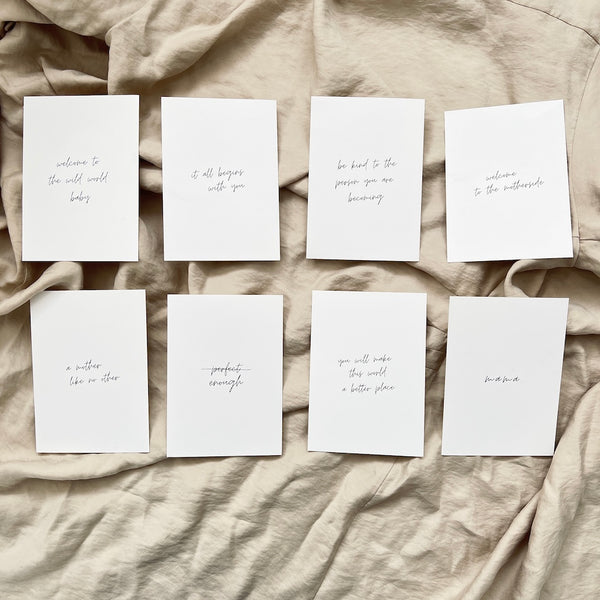 welcome to
the wild world
baby
it all begins
with you
be kind to the
person you are
becoming
welcome
to the motherside
a mother
like no other
perfect
enough
you will make
this world
a better place
mama